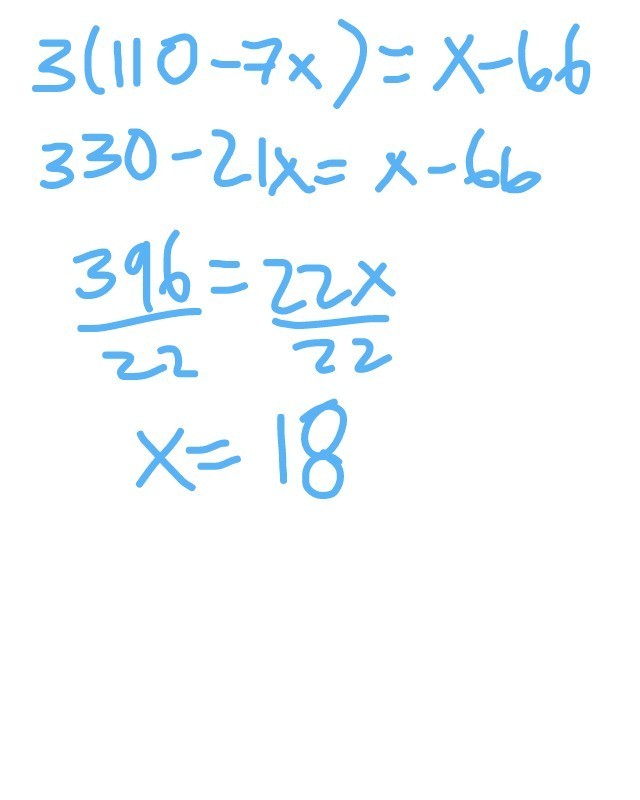 3(110-7x)=x-66
330-21x=x-66
396=22x
22 22
x=18